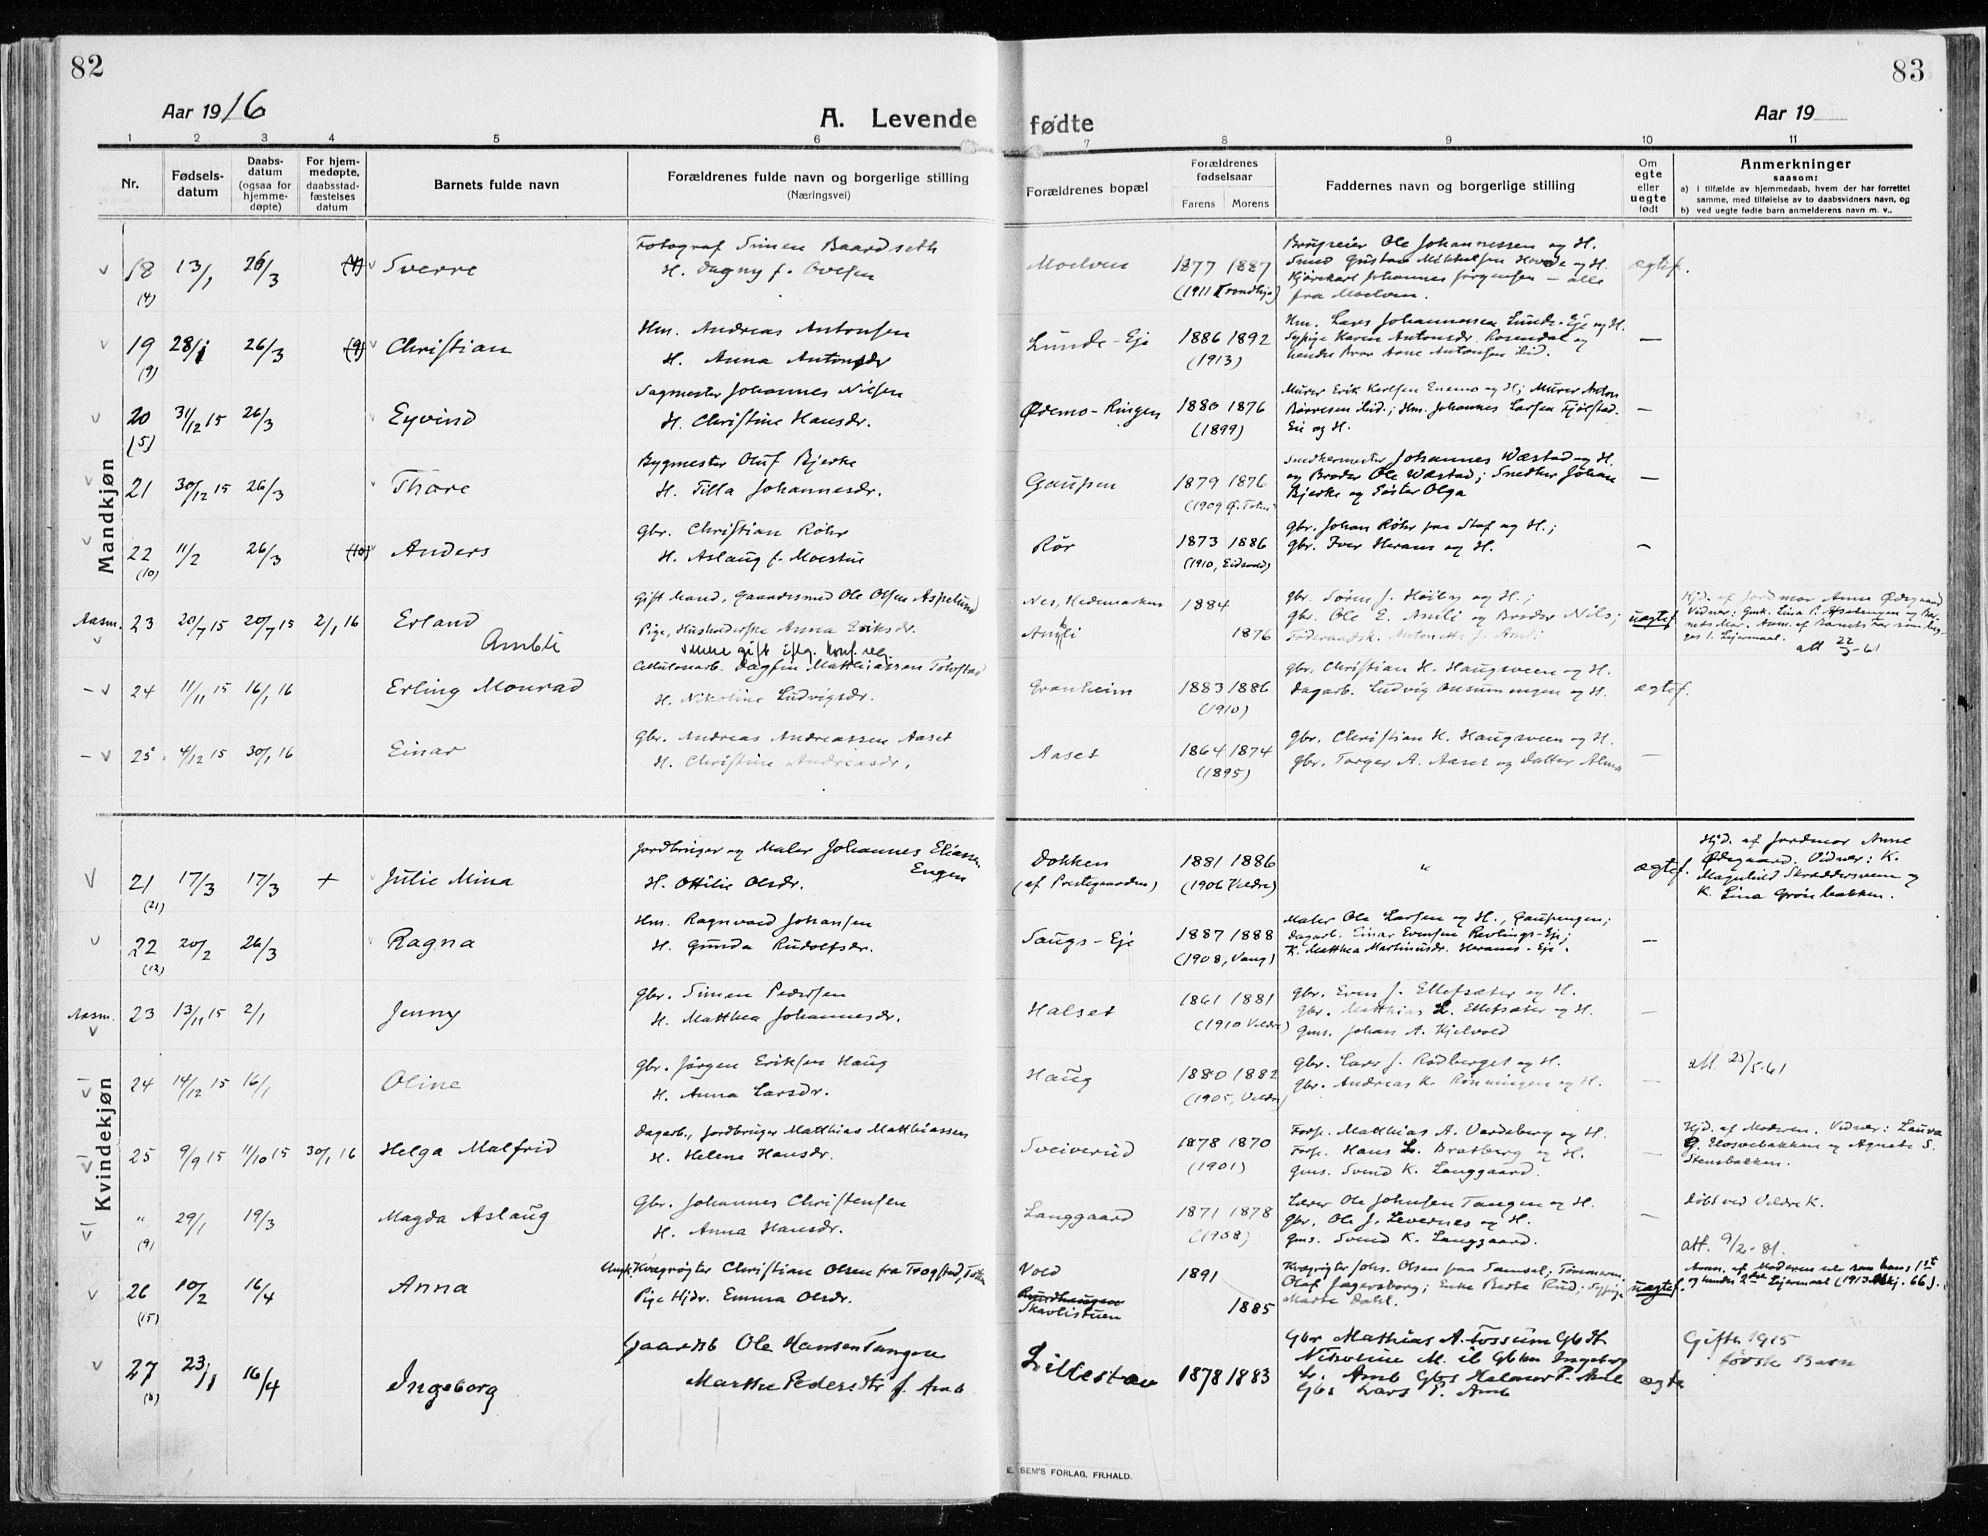 82
83
Aar 1916
A. Levende fødte
Aar 19
1 2 3 4 5 6 7 8 9 10 11
Nr.
Fødselsdatum
Daabsdatum (ogsaa for hjemmedøpte)
For hjemmedøpte, daabsstadfæstelses datum
Barnets fulde navn
Forældrenes fulde navn og borgerlige stilling
(Næringsvei)
Forældrenes bopæl
Forældrenes fødselsaar
Farens Morens
Faddernes navn og borgerlige stilling
Om egte eller uegte født
Anmerkninger
saasom:
a) i tilfælde av hjemmedaab, hvem der har forrettet samme, med tilføielse av to daabsvidners navn, og
b) ved uegte fødte barn anmelderens navn m. v..
Mandkjøn
18 (4) 13/1 26/3 (4) Sverre
Fotograf Simen Baardseth
H. Dagny f. Ovesen
Moelven 1877 1887
Brugseier Ole Johannessen og H.
Smed Gustav Mikkelsen og H.
Kjørekarl Johannes Jørgensen – alle
fra Moelven.
ægtef.
19 (9) 28/1 26/3 (9) Christian
Hm. Andreas Antonsen
H. Anna Antonsdr
Lunde-Eje 1886 1892
(1913)
Hm. Lars Johannessen Lunde-Eje og H.
Sypige Karen Antonsdr. Rosendal og
hendes Bror Arne Antonsen ibid.
—
20 (5) 31/12 15 26/3 Eyvind
Sagmester Johannes Nilsen
H. Christine Hansdr.
Ødemo-Ringen 1880 1876
(1899)
Murer Erik Karlsen Enemo og H; Murer Anton
Børresen ibid.; Hm. Johannes Larsen Fjørstad-
Eie og H.
—
21 30/12 15 26/3 Thore
Bygmester Oluf Bjerke
H. Tilla Johannesdr.
Gaupen 1879 1876
(1909 Ø. Toten)
Snedkermester Johannes Wæstad og H.
og Broder Ole Wæstad; Snedker Johan
Bjerke og Søster Olga
—
22 (10) 11/2 26/3 (10) Anders
Gbr. Christian Röhr
H. Aslaug f. Moestue
Rör 1873 1886
(1910, Eidsvold)
Gbr. Johan Röhr paa Staf og H.;
Gbr. Iver Herans og H.
—
Aasm. 23 20/7 15 20/7 15 2/1 16 Erland
Ambli
Gift Mand, Gaardssmed Ole Olsen Aspelund
Pige, Husholderske Anna Eriksdr.
senere gift iflg. konf. reg.
Nes, Hedemarken 1884
Ambli 1876
Gbr. Søren J. Høiby og H.;
Gbr. Ole E. Amli og Broder Nils;
Føderaadsk. Antonette J. Amli
uægtef.
Hjd. af Jordmor Anne Ødegaard
att 22/3-61
24 11/11 15 16/1 16 Erling Monrad
Cellulosearb. Dagfin Matthiassen Tolofstad
H. Nikoline Ludvigsdr.
Granheim 1883 1886
(1910)
Gbr. Christian H. Haugsveen og H.
Dagarb. Ludvig Onsumengen og H.
ægtef.
25 4/12 15 30/1 16 Einar
Gbr. Andreas Andreassen Aaset
H. Christine Andreasdr.
Aaset 1864 1874
(1895)
Gbr. Christian H. Haugsveen og H.
Gbr. Torger A. Aaset og Datter Alma
—
Kvindekjøn
21 (21) 17/3 17/3 + Julie Mina
Jordbruger og Maler Johannes Eliassen
Engen
H. Ottilie Olsdr.
Dokken
(af Prestegaarden)
1881 1886
(1906 Veldre)
"
ægtef.
Hjd. af Jordmor Anne
Ødegaard. Vidner: K.
Magnhild Skræddersveen og
K. Lina Grönbakken.
22 (12) 20/2 26/3 Ragna
Hm. Ragnvald Johansen
H. Gunda Rudolfsdr.
Saugs-Eje 1887 1888
(1908, Vang)
Maler Ole Larsen og H., Gaupengen;
Dagarb. Einar Evensen Revlings-Eje;
K. Matthea Martinusdr. Herams-Eje.
—
Aasm. 23 13/11 15 2/1 Jenny
Gbr. Simen Pedersen
H. Matthea Johannesdr.
Halset 1861 1881
(1910 Veldre)
Gbr. Even J. Ellefsæter og H.
Gbr. Matthias L. Ellefsæter og H.
Gms. Johan A. Kjelvold
—
24 14/12 15 16/1 Oline
Gbr. Jørgen Eriksen Haug
H. Anna Larsdr.
Haug 1880 1882
(1905, Veldre)
Gbr. Lars J. Rødberget og H.
Gbr. Andreas K. Rönningen og H.
—
att. 25/5-61
25 9/9 15 11/10 15 30/1 16 Helga Malfrid
Dagarb., Jordbruger Matthias Matthiassen
H. Helene Hansdr.
Sveiverud 1878 1870
(1901)
Forp. Matthias A. Vardeberg og H.
Forp. Hans L. Bratberg og H.
Gms. Svend K. Langgaard.
—
Hjd. af Moderen. Vidner: Laura
G. Elosvebakken og Agnete S.
Stensbakken.
" (9) 29/1 19/3 Magda Aslaug
Gbr. Johannes Christensen
H. Anna Hansdr.
Langgaard 1871 1878
(1908)
Lærer Ole Johnsen Tangen og H.
Gbr. Ole J. Levernes og H.
Gms. Svend K. Langgaard.
—
Döbt ved Veldre K.
att. 9/2-81.
26 (15) 10/2 16/4 Anna
Ungk. Kvægrøgter Christian Olsen fra Trogstad, Toten
Pige Hjdr. Emma Olsdr.
Vold 1891
Skavlistuen 1885
Kvægrøgter Johs. Olsen paa Samsal; Tømmerm.
Olaf Jagersborg; Enke Berte Rud; Sypige
Marte Dahl.
uægtef.
Anm. af Moderen selv som hans 1st
og hendes 2det Lejermaal (1913. Mkj. 66).
27 (6) 23/1 16/4 Ingeborg
Gaardb Ole Hansen Tangen
Marthe Pedersdtr f. Amb
Lillestav 1878 1883
Gbr Mathias A. Fossum Gb H
Nikoline M. ib Gbken Ingeborg
L. Amb Gbs Halvor P.
Gbs Lars P. Amb
ægte
Gifte 1915
første Barn
E. SEM'S FORLAG, FR.HALD.